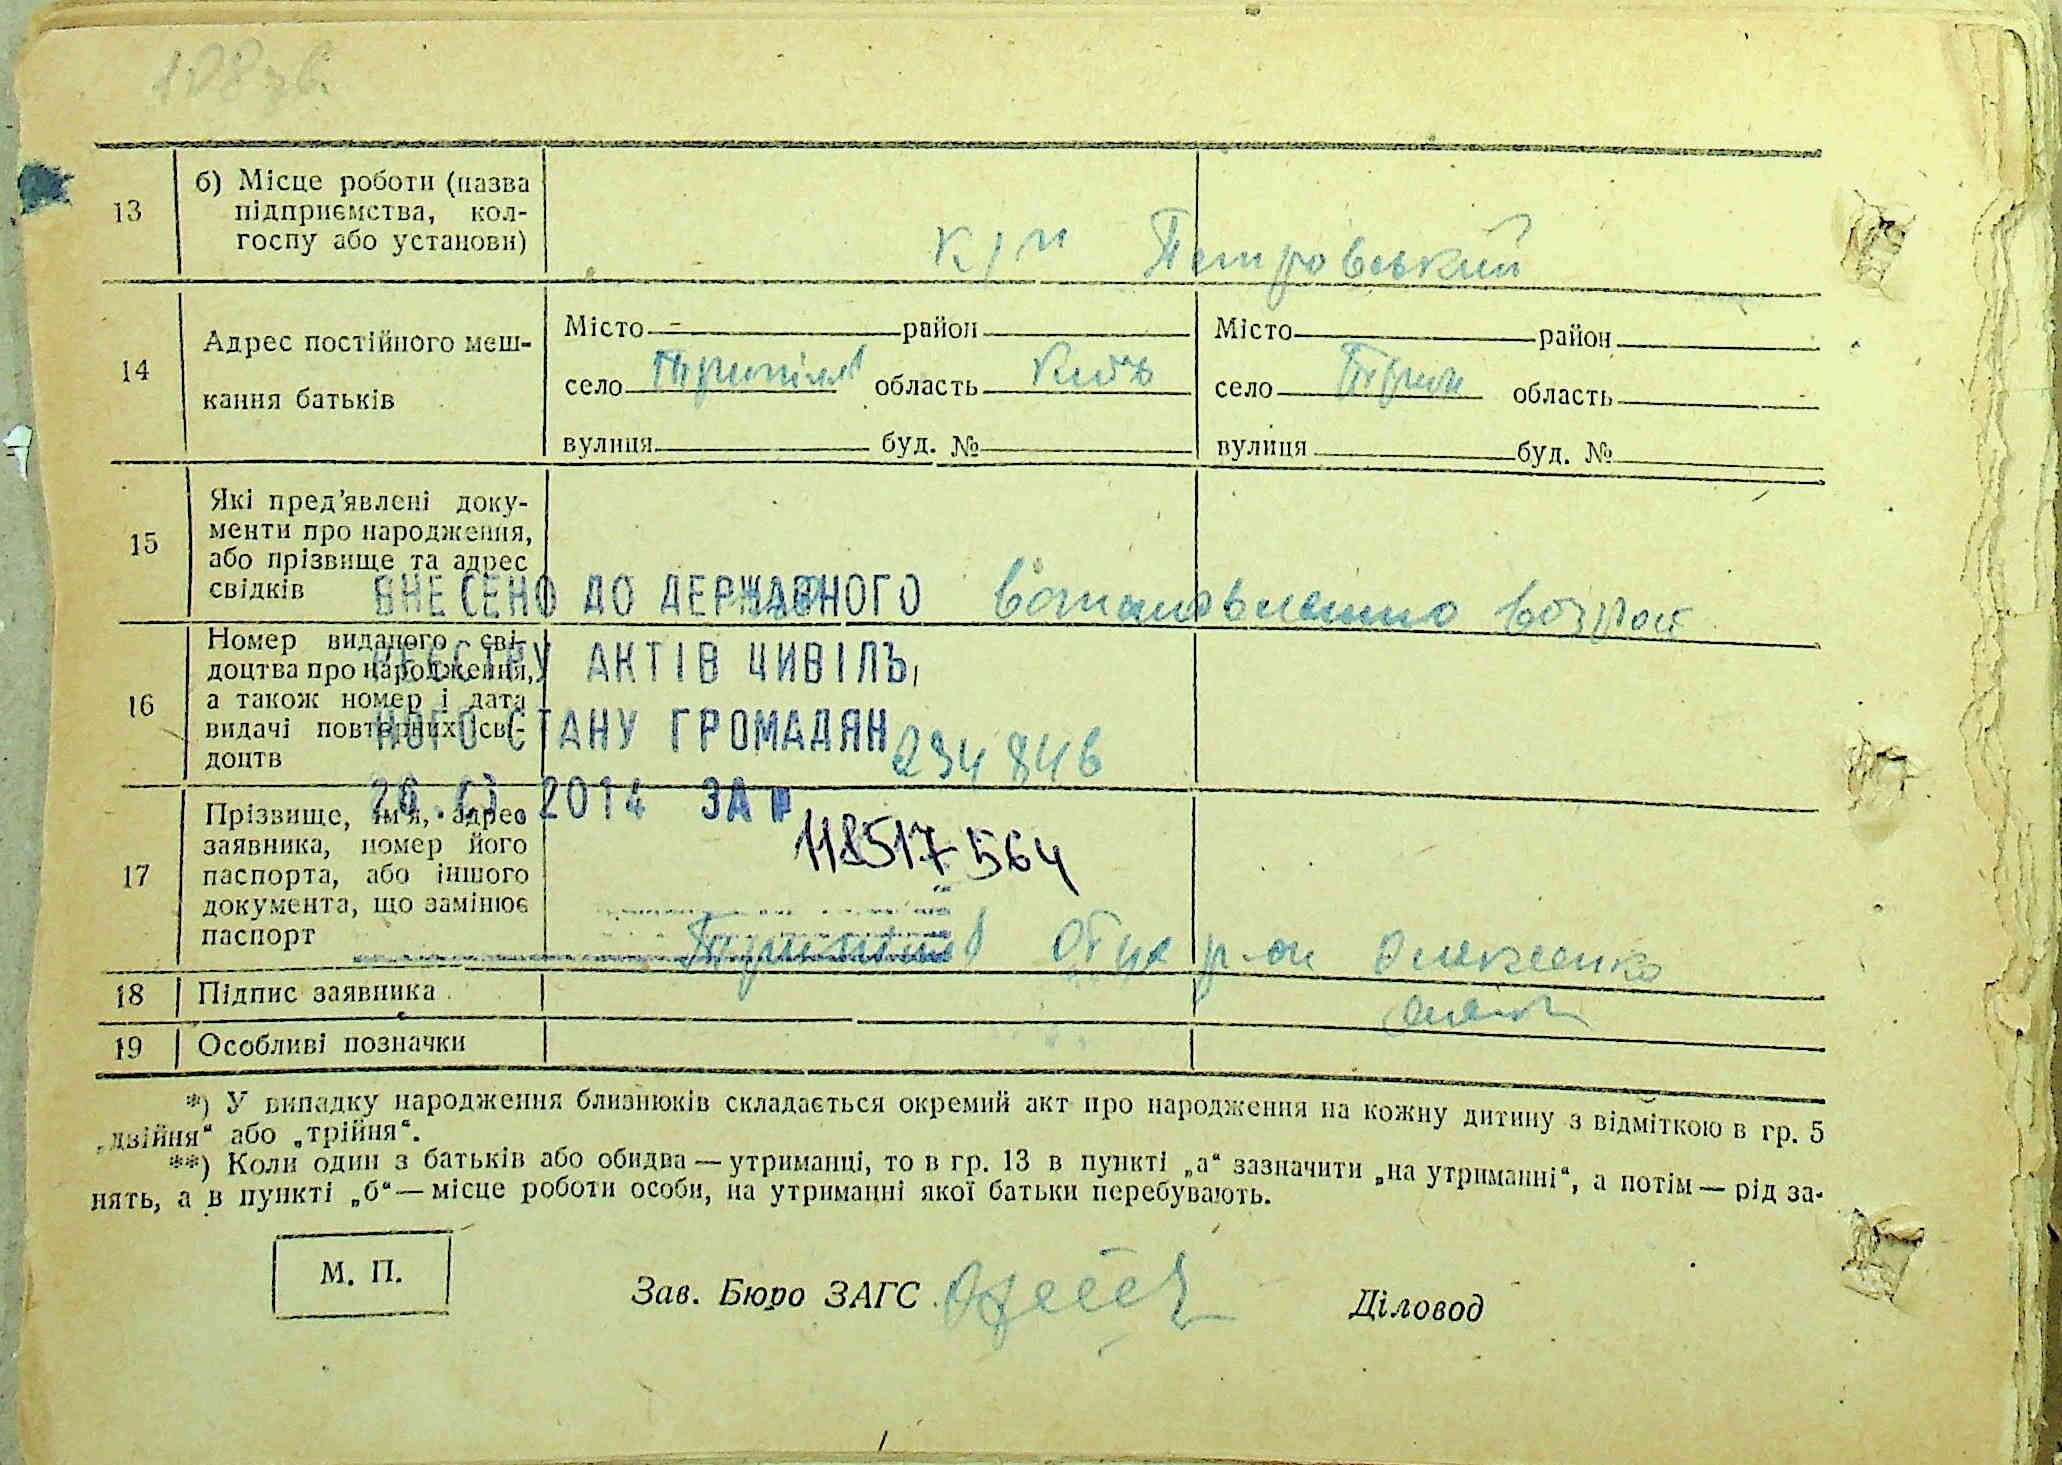 108 зв.
13
б) Місце роботи (назва
підприємства, кол-
госпу або установи)
к/г Петровський
14
Адрес постійного меш-
кання батьків
Місто район
село Трипілля область Київ
вулиця буд. №
Місто район
село Трип область
вулиця буд. №
15
Які пред'явлені доку-
менти про народження,
або прізвище та адрес
свідків
возрост
ВНЕСЕНО ДО ДЕРЖАВНОГО
РЕЄСТРУ АКТІВ ЦИВІЛЬ
НОГО СТАНУ ГРОМАДЯН
2014 ЗА №
118517564
16
Номер виданого сві-
доцтва про народження,
а також номер і дата
видачі повторних сві-
доцтв
234846
17
Прізвище, ім'я, адрес
заявника, номер його
паспорта, або іншого
документа, що замінює
паспорт
Обух р-он
18
Підпис заявника
19
Особливі позначки
*) У випадку народження близнюків складається окремий акт про народження на кожну дитину з відміткою в гр. 5
„двійня“ або „трійня“.
**) Коли один з батьків або обидва — утриманці, то в гр. 13 в пункті „а“ зазначити „на утриманні“, а потім — рід за-
нять, а в пункті „б“ — місце роботи особи, на утриманні якої батьки перебувають.
М. П.
Зав. Бюро ЗАГС
Діловод